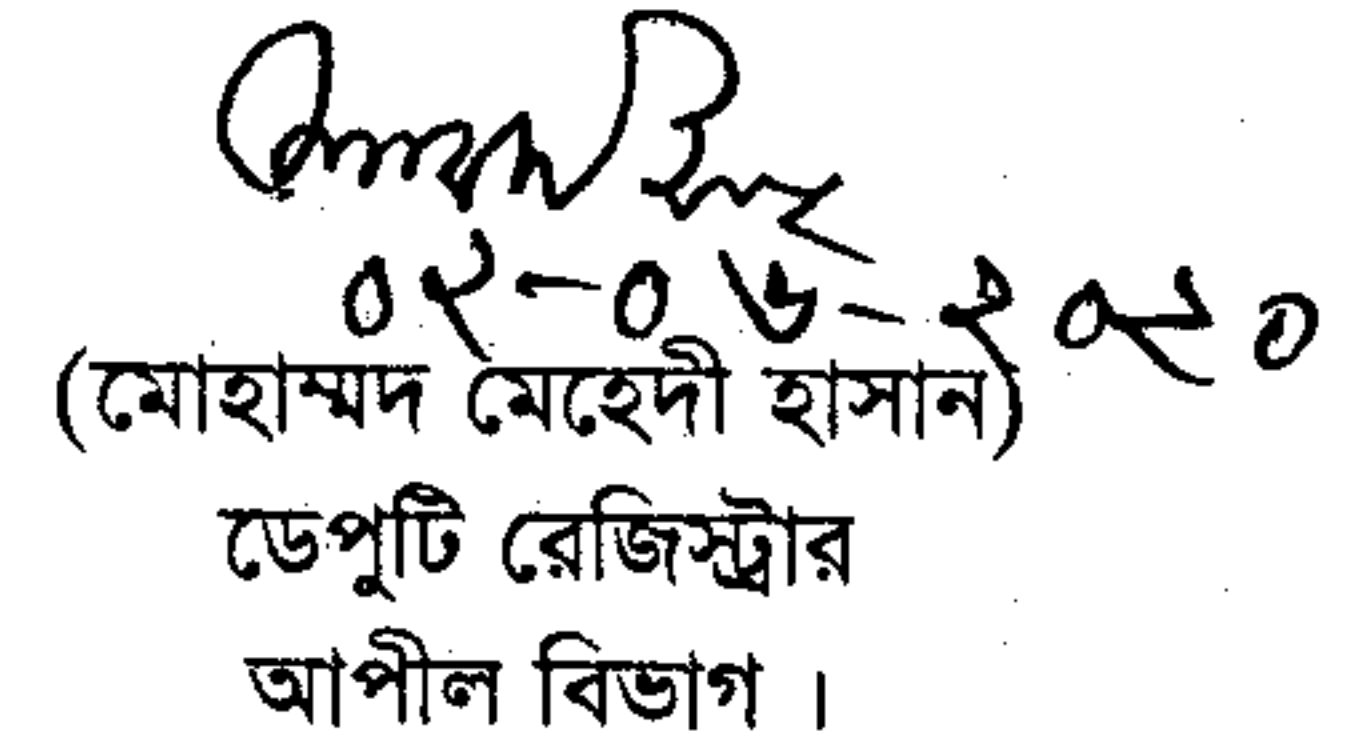 ০২-০৬-২০২০
(মোহাম্মদ মেহেদী হাসান)
ডেপুটি রেজিস্ট্রার
আপীল বিভাগ ।